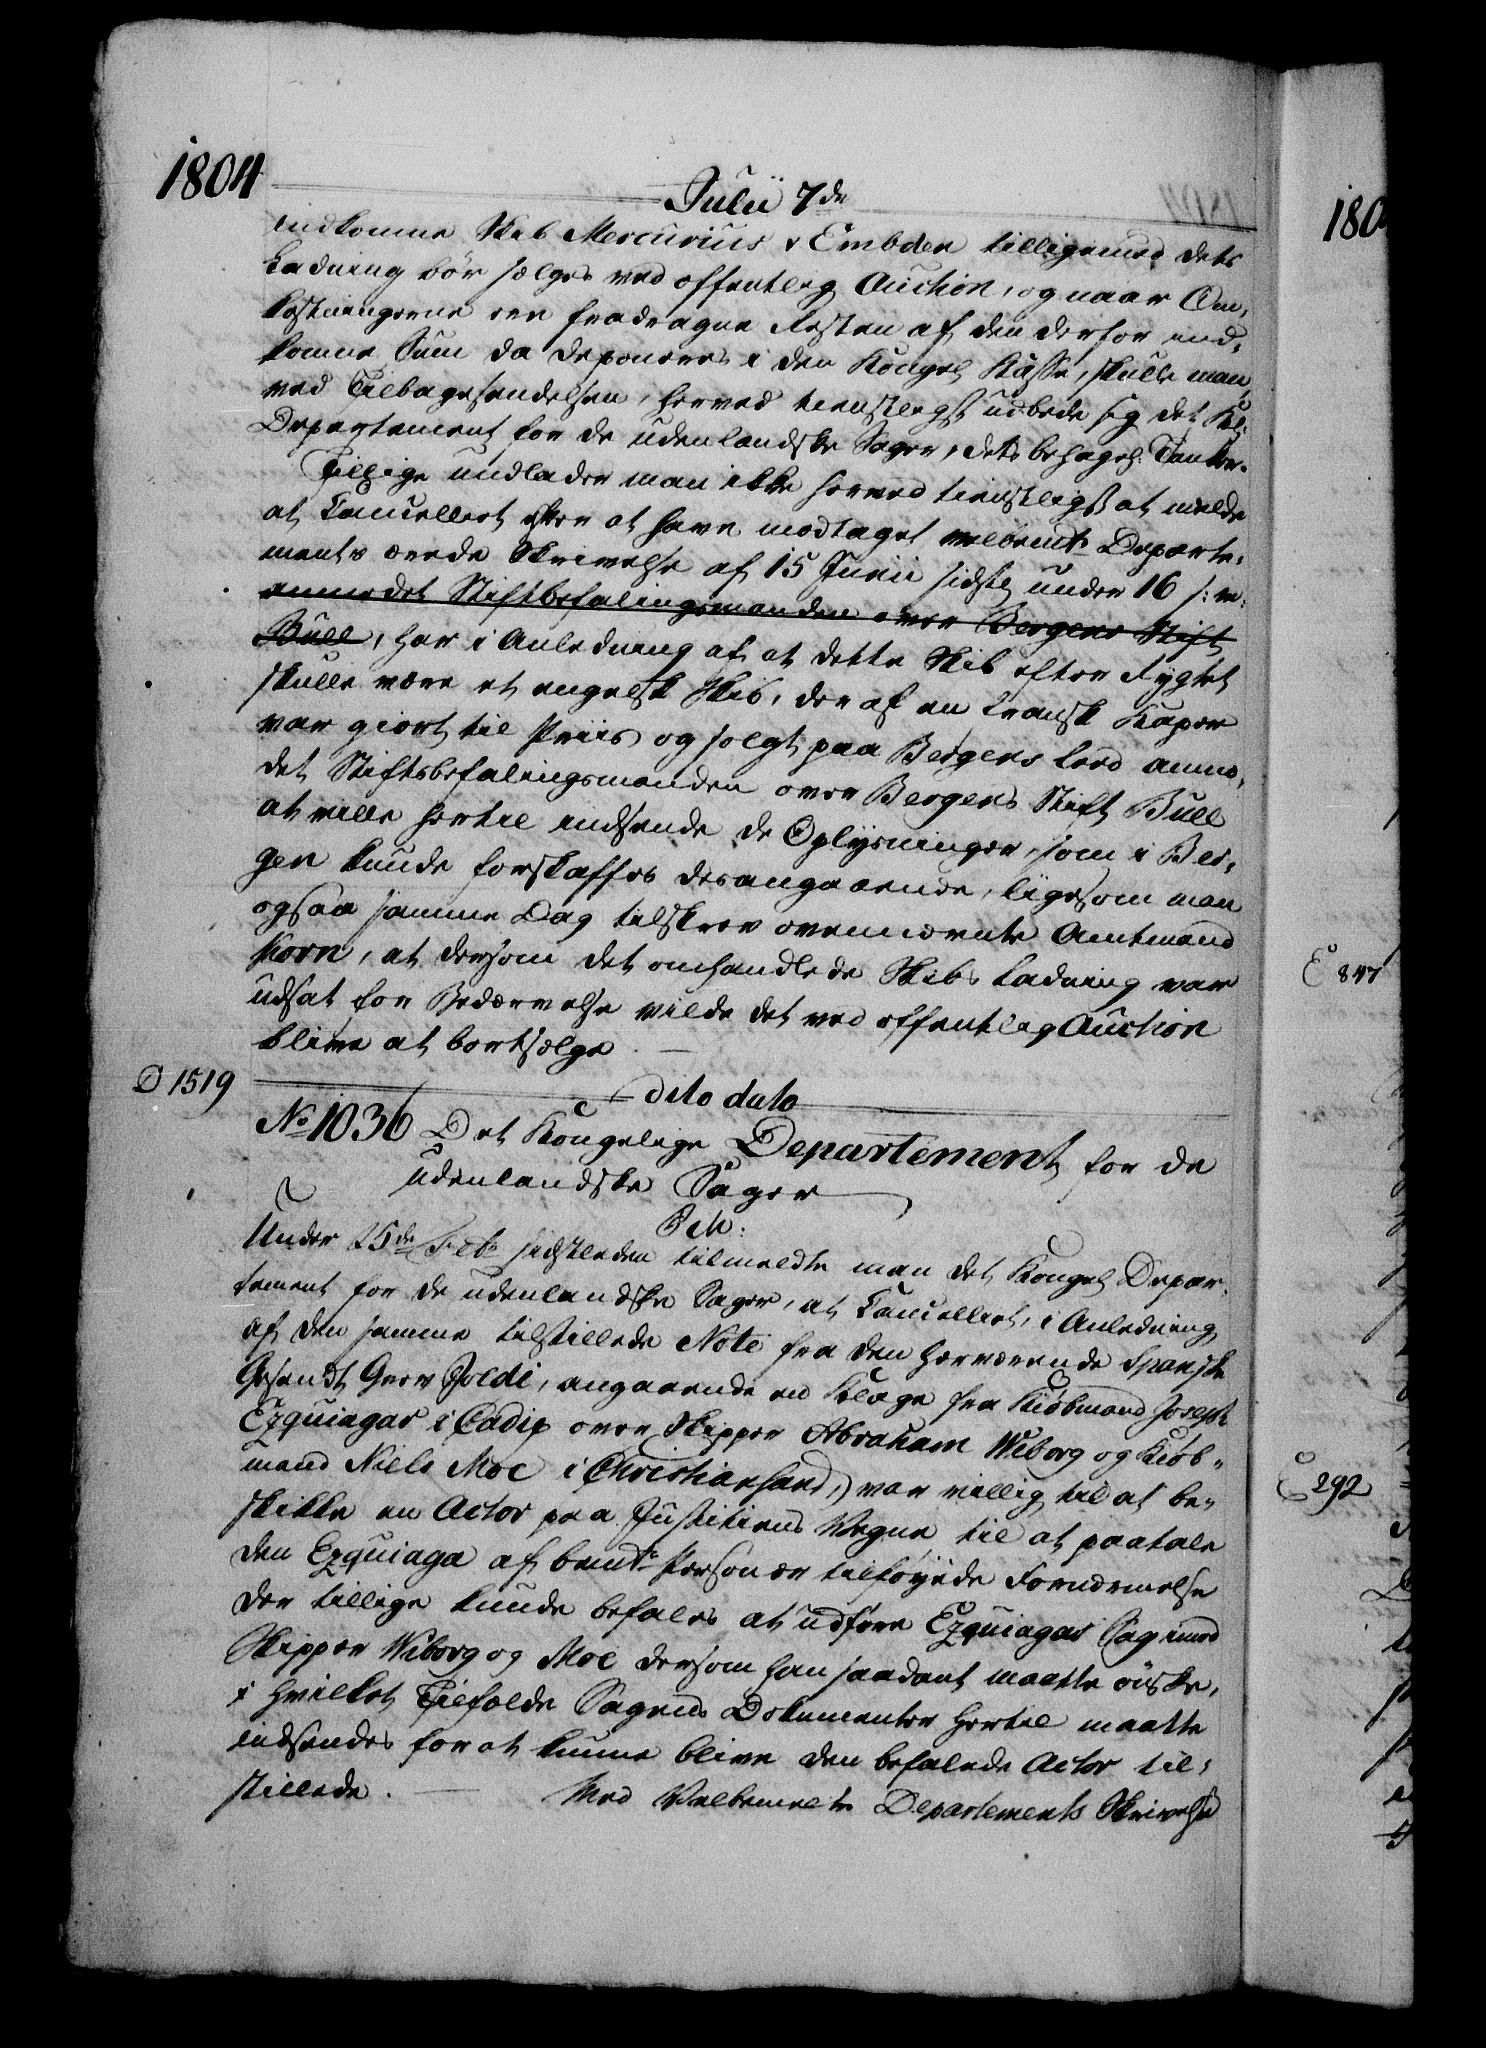 1804
Julii 7de
indkomne Skib Mercurius v Embden tilligemed dets
Ladning bör sælges ved offentlig Auction, og naar Om,
kostningerne ere fradragne Resten af den derfor ind,
komne Sum da deponeres i den Kongel Kasse, skulle man,
ved Tilbagesendelsen, herved tienstligst udbede sig det Kgl:
Departement for de udenlandske Sager, dets behagel. Tanker.
Tillige undlader man ikke herved tienstligst at melde
at Cancelliet efter at have modtaget velbemte Departe,
ments ærede Skrivelse af 15 Junii sidstl under 16 s: m:
anmodet Stiftbefalingsmanden over Bergens Stift
Bull, har i Anledning af at dette Skib efter Rygtet
skulle være et engelsk Skib, der af en fransk Kaper
var giort til Priis og solgt paa Bergens Leed anmo,
det Stiftsbefalingsmanden over Bergens Stift Bull
at ville hertil indsende de Oplysninger, som i Ber,
gen kunde forskaffes desangaaende, ligesom man
ogsaa samme Dag tilskrev ovennævnte Amtmand
Korn, at dersom det omhandlede Skibs Ladning var
udsat for Bedærvelse vilde det ved offentlig Auction
blive at bortsælge.
D 1519
dito dato
No 1036 Det Kongelige Departement for de
udenlandske Sager
P M:
Under 25de Feb. sidstleden tilmeldte man det Kongel Depar,
tement for de udenlandske Sager, at Cancelliet, i Anledning
af den samme tilstillede Note fra den herværende Spanske
Gesendt Grev Joldi, angaaende en Klage fra Kiöbmand Joseph
Ezquiagas i Cadix over Skipper Abraham Wiborg og Kiöb,
mand Niels Moe i Christiansand, var villig til at be,
skikke en Actor paa Justitiens Vegne til at paatale
den Ezquiaga af bemte Personer tilföyede Fornærmelse
der tillige kunde befales at udföre Ezquiagas Sag imod
Skipper Wiborg og Moe dersom han saadant maatte önske,
i hvilket Tilfælde Sagens Dokumenter hertil maatte
indsendes for at kunne blive den befalede Actor til,
stillede. Med Velbemelte Departements Skrivelse
180
E 847
E 292